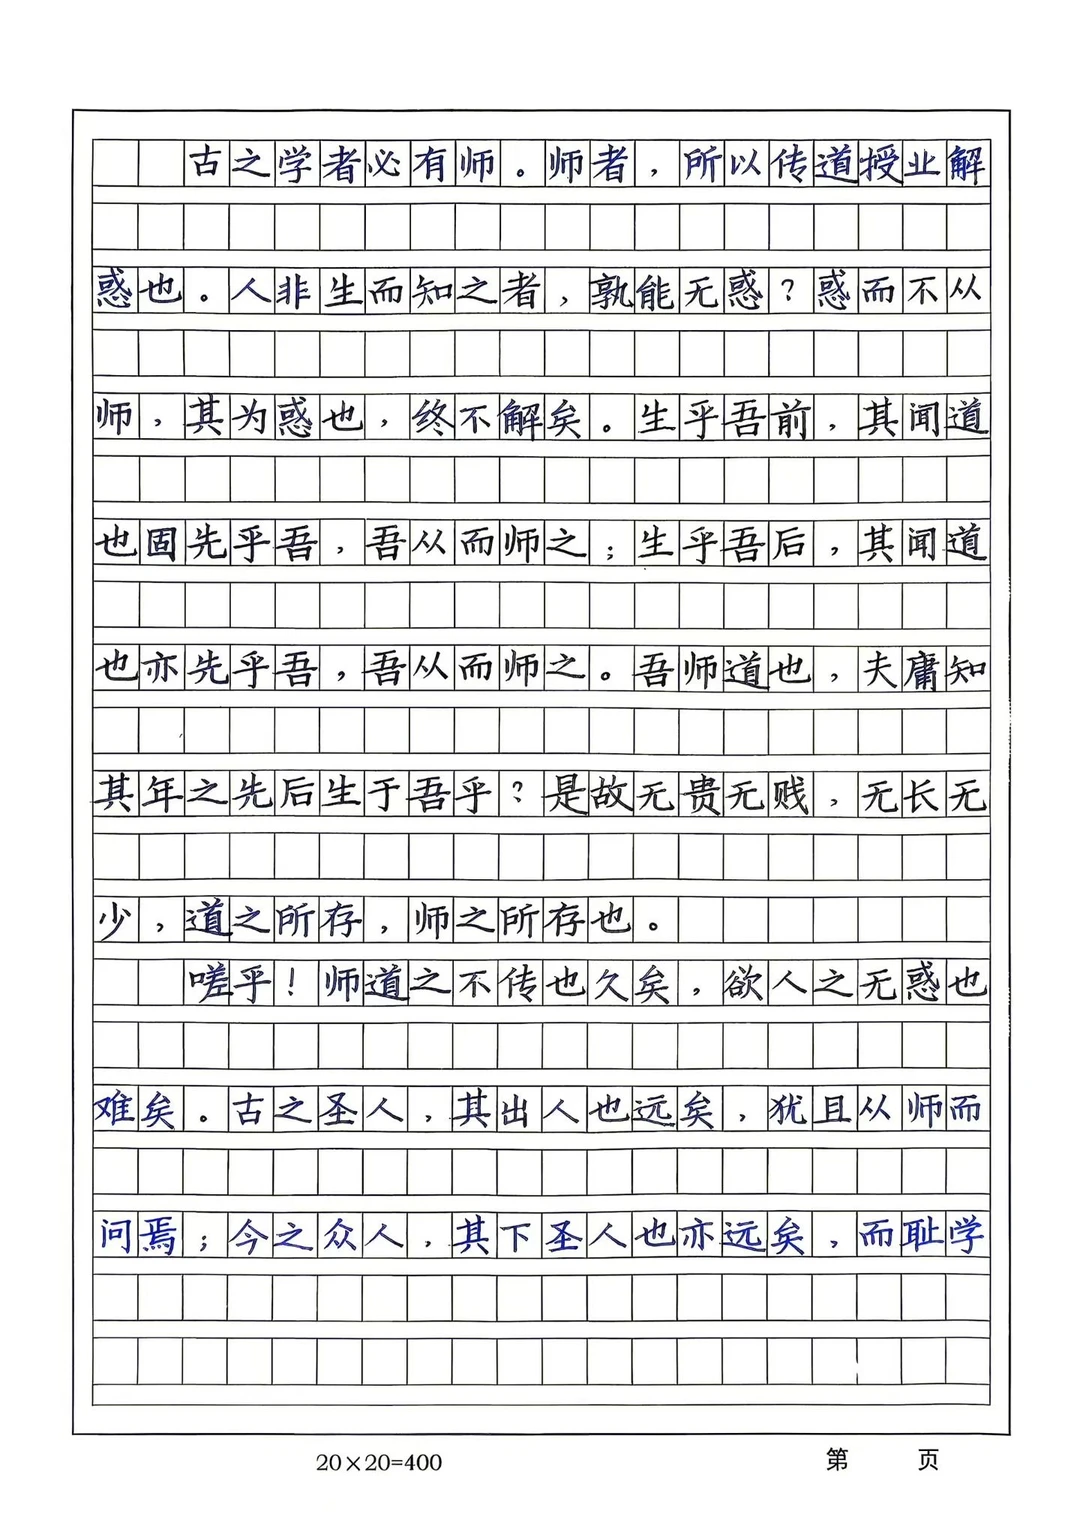 古之学者必有师。师者，所以传道授业解
惑也。人非生而知之者，孰能无惑？惑而不从
师，其为惑也，终不解矣。生乎吾前，其闻道
也固先乎吾，吾从而师之；生乎吾后，其闻道
也亦先乎吾，吾从而师之。吾师道也，夫庸知
其年之先后生于吾乎？是故无贵无贱，无长无
少，道之所存，师之所存也。
嗟乎！师道之不传也久矣，欲人之无惑也
难矣。古之圣人，其出人也远矣，犹且从师而
问焉；今之众人，其下圣人也亦远矣，而耻学
20×20=400
第 页